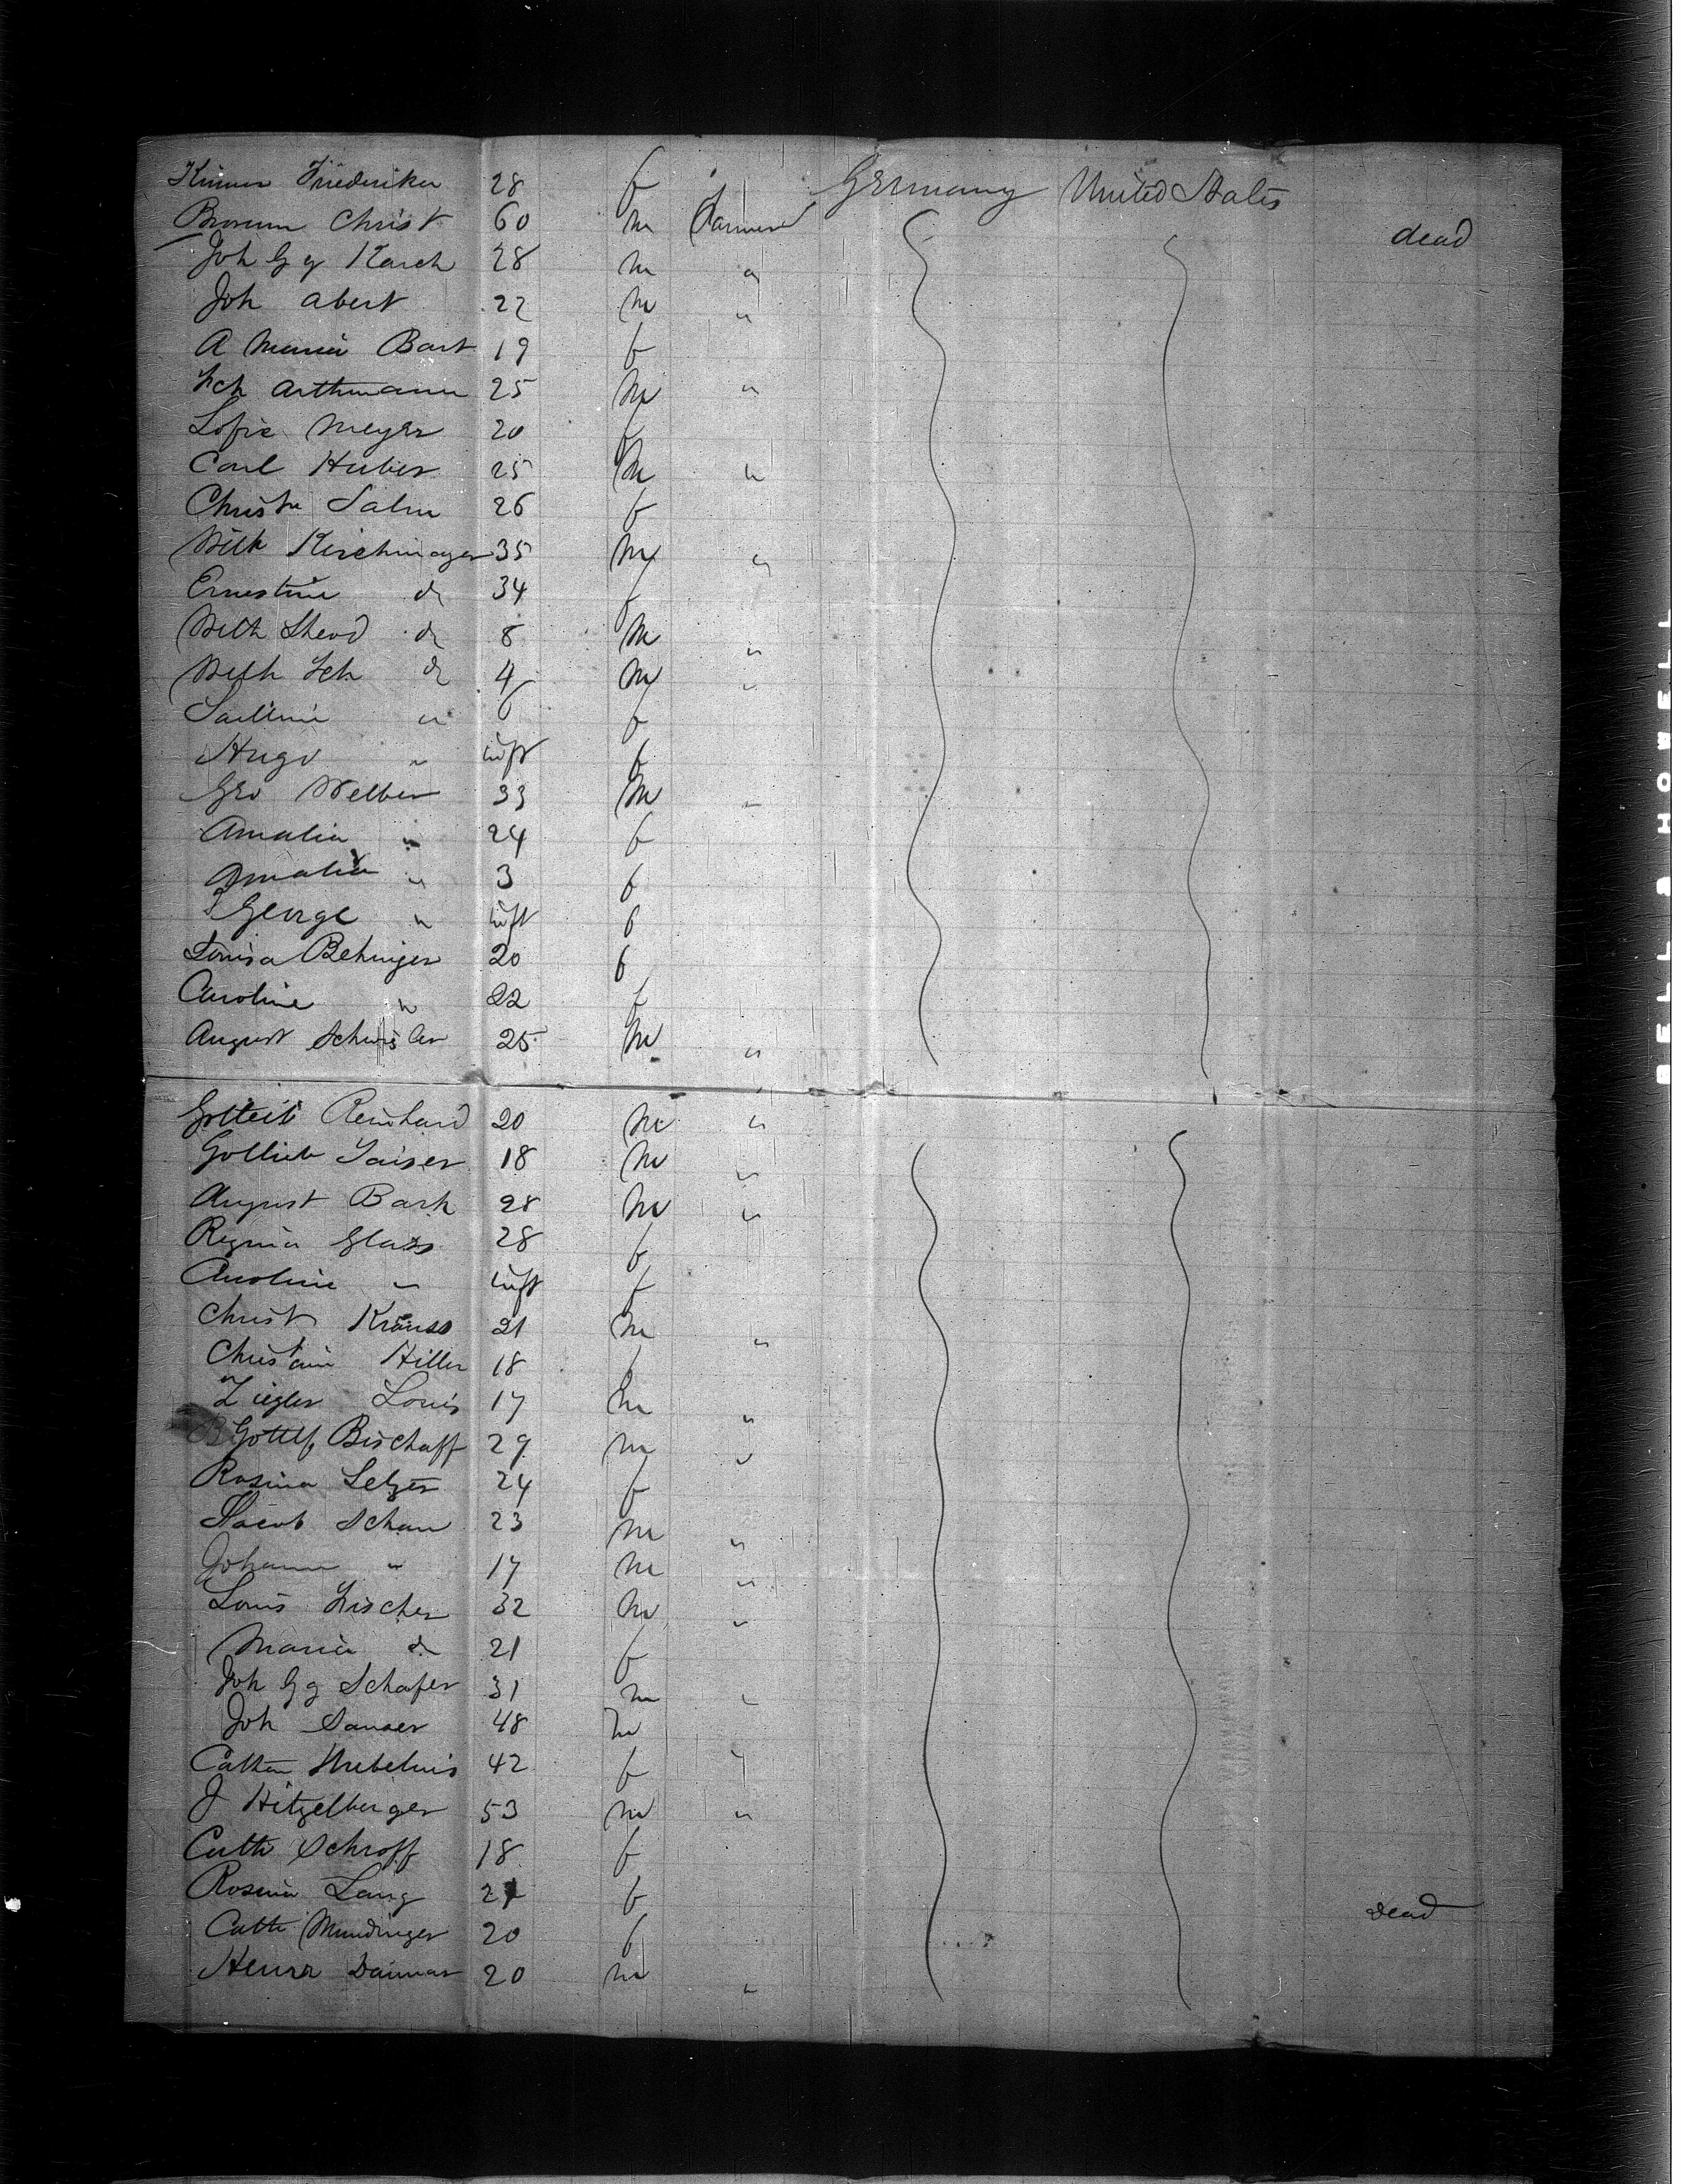 Friederika 28 f " Germany United States
Christ 60 m Farmer dead
Joh Gg Karch 28 m "
Joh Abert 22 m "
A Maria Bart 19 f
Fch Arthmann 25 m "
Sofie Meyer 20 f
Carl Huber 25 m "
Christne Salm 26 f
Wilh Kirchmayer 35 m "
Ernestine do 34 f
Wilh do 8 m "
Wilh Fch do 4 m "
" f
Hugo " inft f
Geo Welber 33 m "
Amalia " 24 f
Amalia " 3 f
George " inft f
Louisa Behinger 20 f
Caroline " 22 f
August 25 m "
Gotleib Reinhard 20 m "
Gottlieb Kaiser 18 m "
August Bark 28 m "
Regina Glass 28 f
Caroline " inft f
Christ Krauss 21 m "
Hiller 18 f
Ziegler Louis 17 m "
Gottlf Bischaff 29 m "
Rosina Selzer 24 f
Jacob Schau 23 m "
Johann " 17 m "
Louis Fischer 32 m "
Maria do 21 f
Joh Gg Schafer 31 m "
Joh 48 m
Cathn 42 f "
J Hitzelberger 53 m "
Cath Schroff 18 f
Rosina Lang f dead
Cath Mundinger 20 f
20 m "
BELL & HOWELL